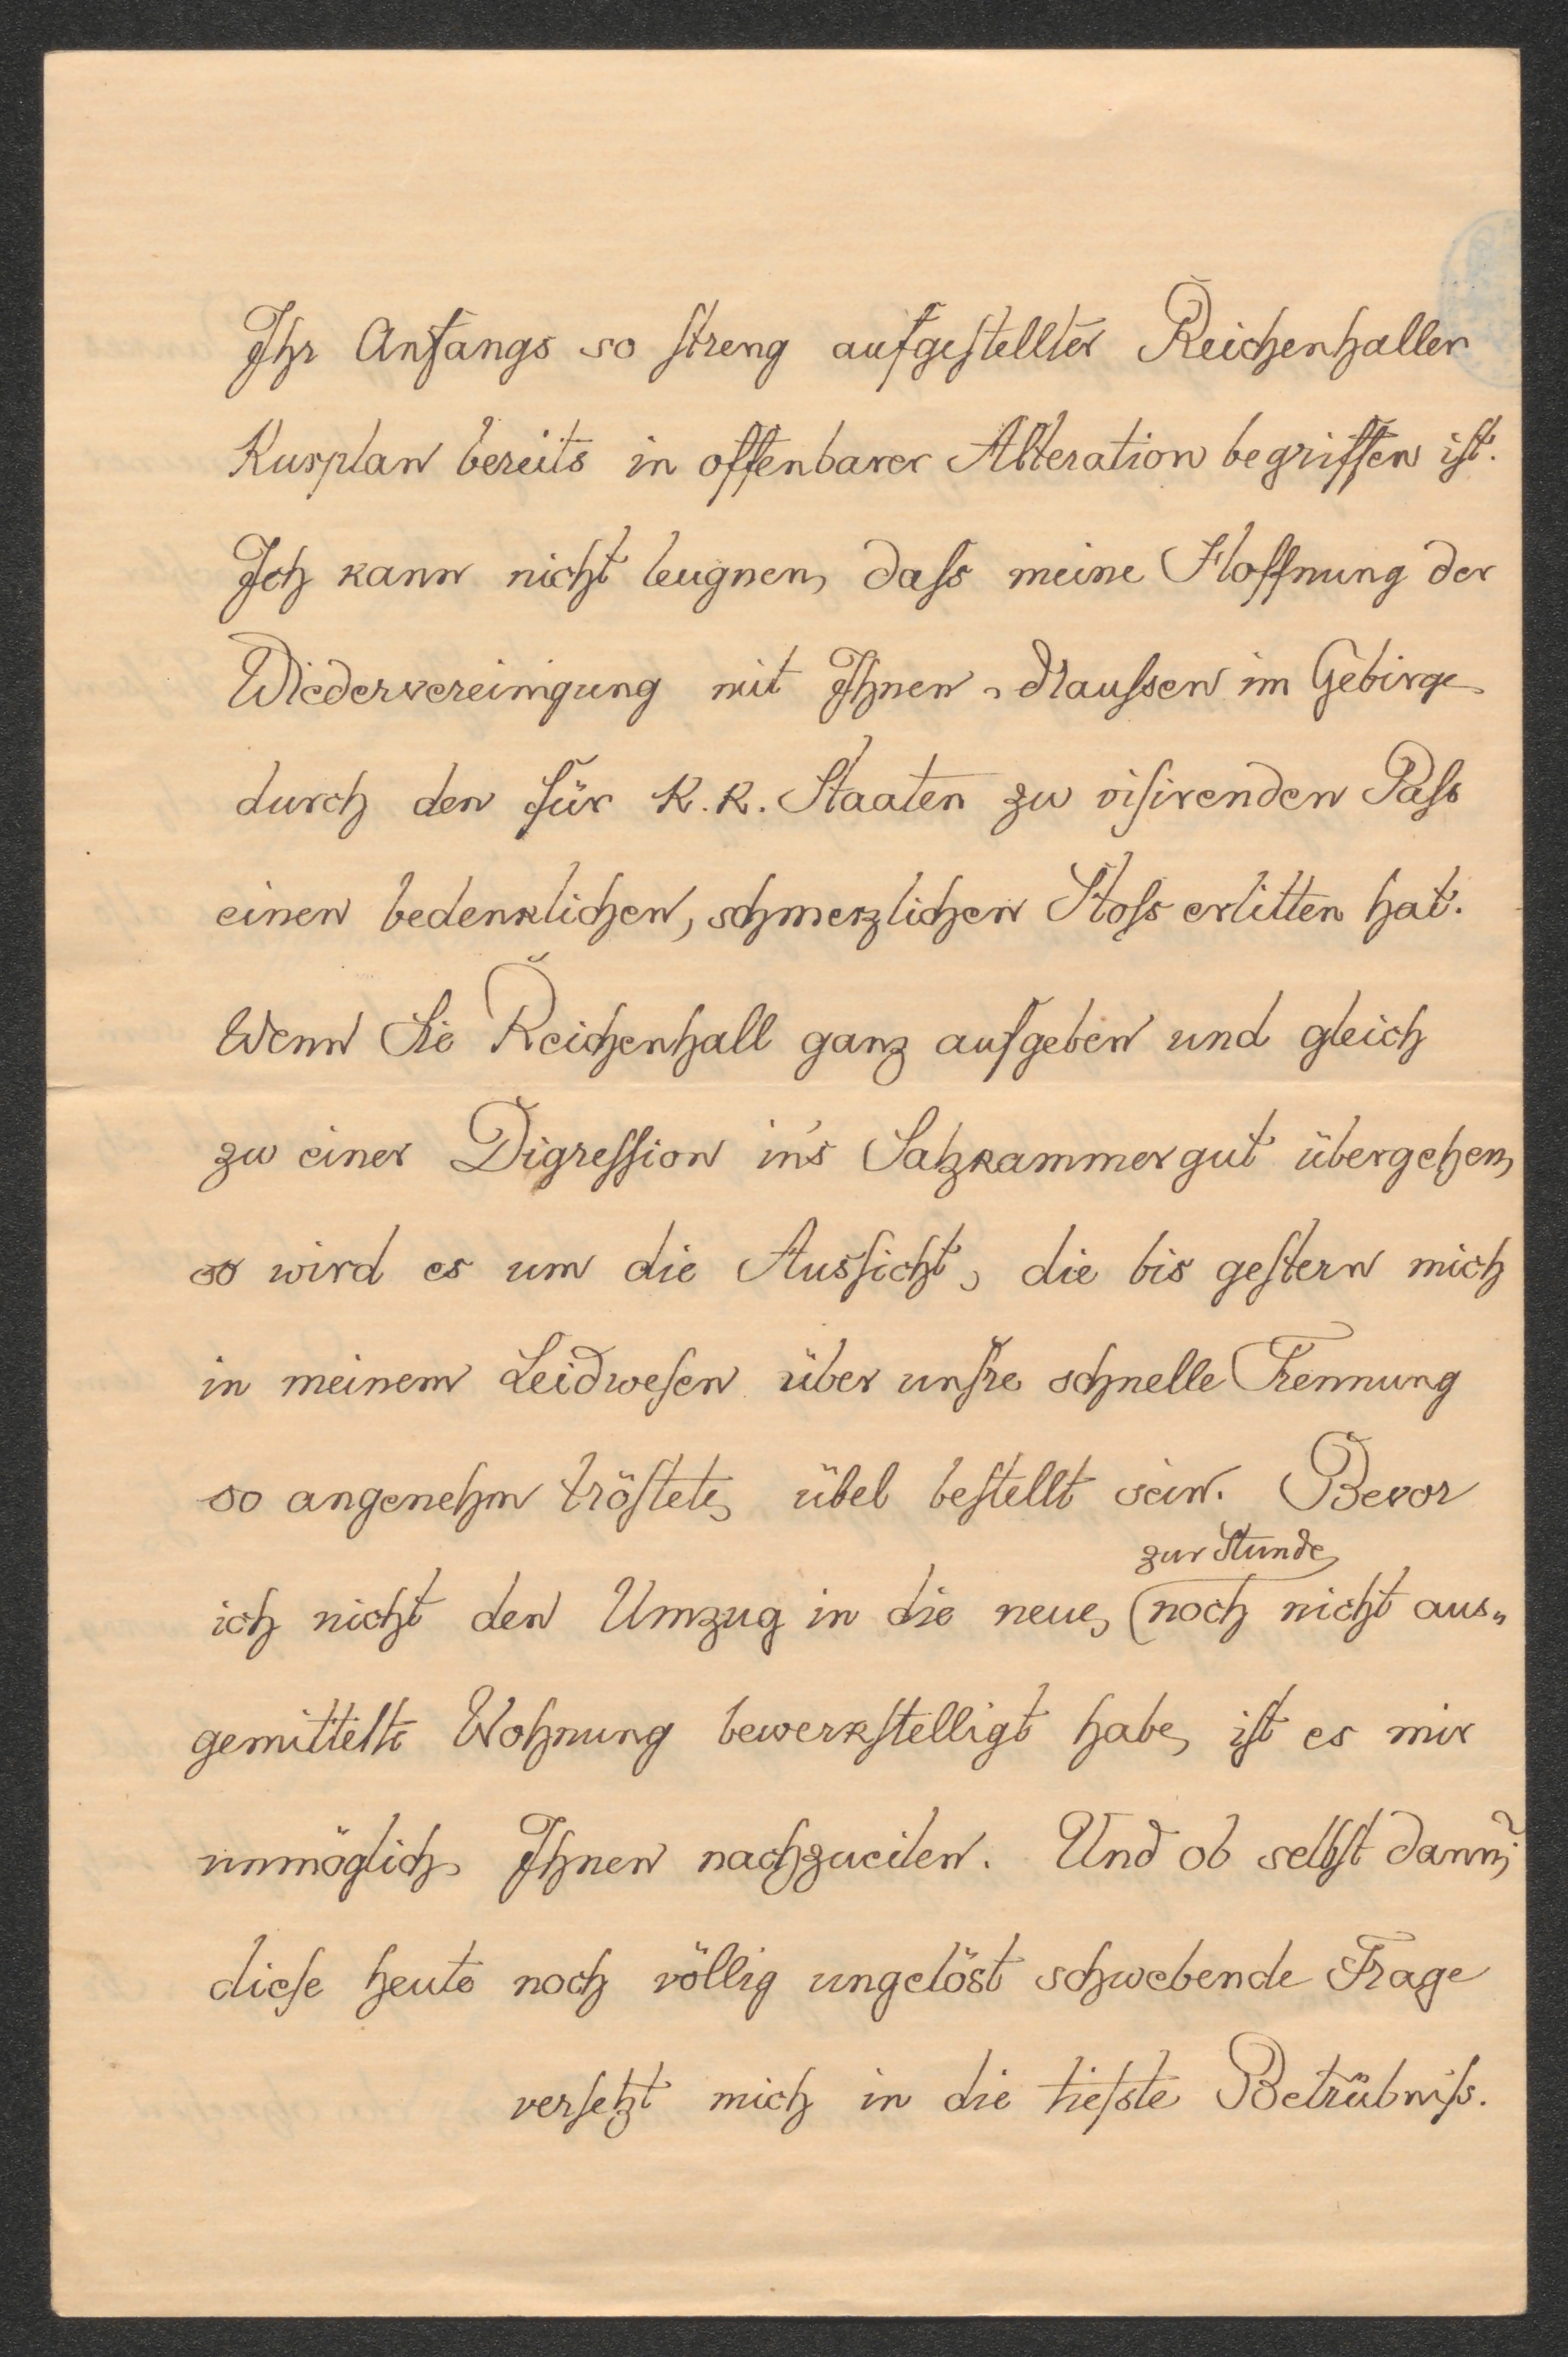 Ihr Anfangs so streng aufgestellter Reichenhaller
Kurplan bereits in offenbarer Alteration begriffen ist.
Ich kann nicht leugnen, dass meine Hoffnung der
Wiedervereinigung mit Ihnen draussen im Gebirge
durch den für K. K. Staaten zu visirenden Pass
einen bedenklichen, schmerzlichen Stoss erlitten hat.
Wenn Sie Reichenhall ganz aufgeben und gleich
zu einer Digression in's Salzkammergut übergehen,
so wird es um die Aussicht, die bis gestern mich
in meinem Leidwesen über unsre schnelle Trennung
so angenehm tröstete, übel bestellt sein. Bevor
zur Stunde
ich nicht den Umzug in die neue, (noch nicht aus„
gemittelte Wohnung bewerkstelligt habe, ist es mir
unmöglich, Ihnen nachzueilen. Und ob selbst dann?
diese heute noch völlig ungelöst schwebende Frage
versetzt mich in die tiefste Betrübniss.